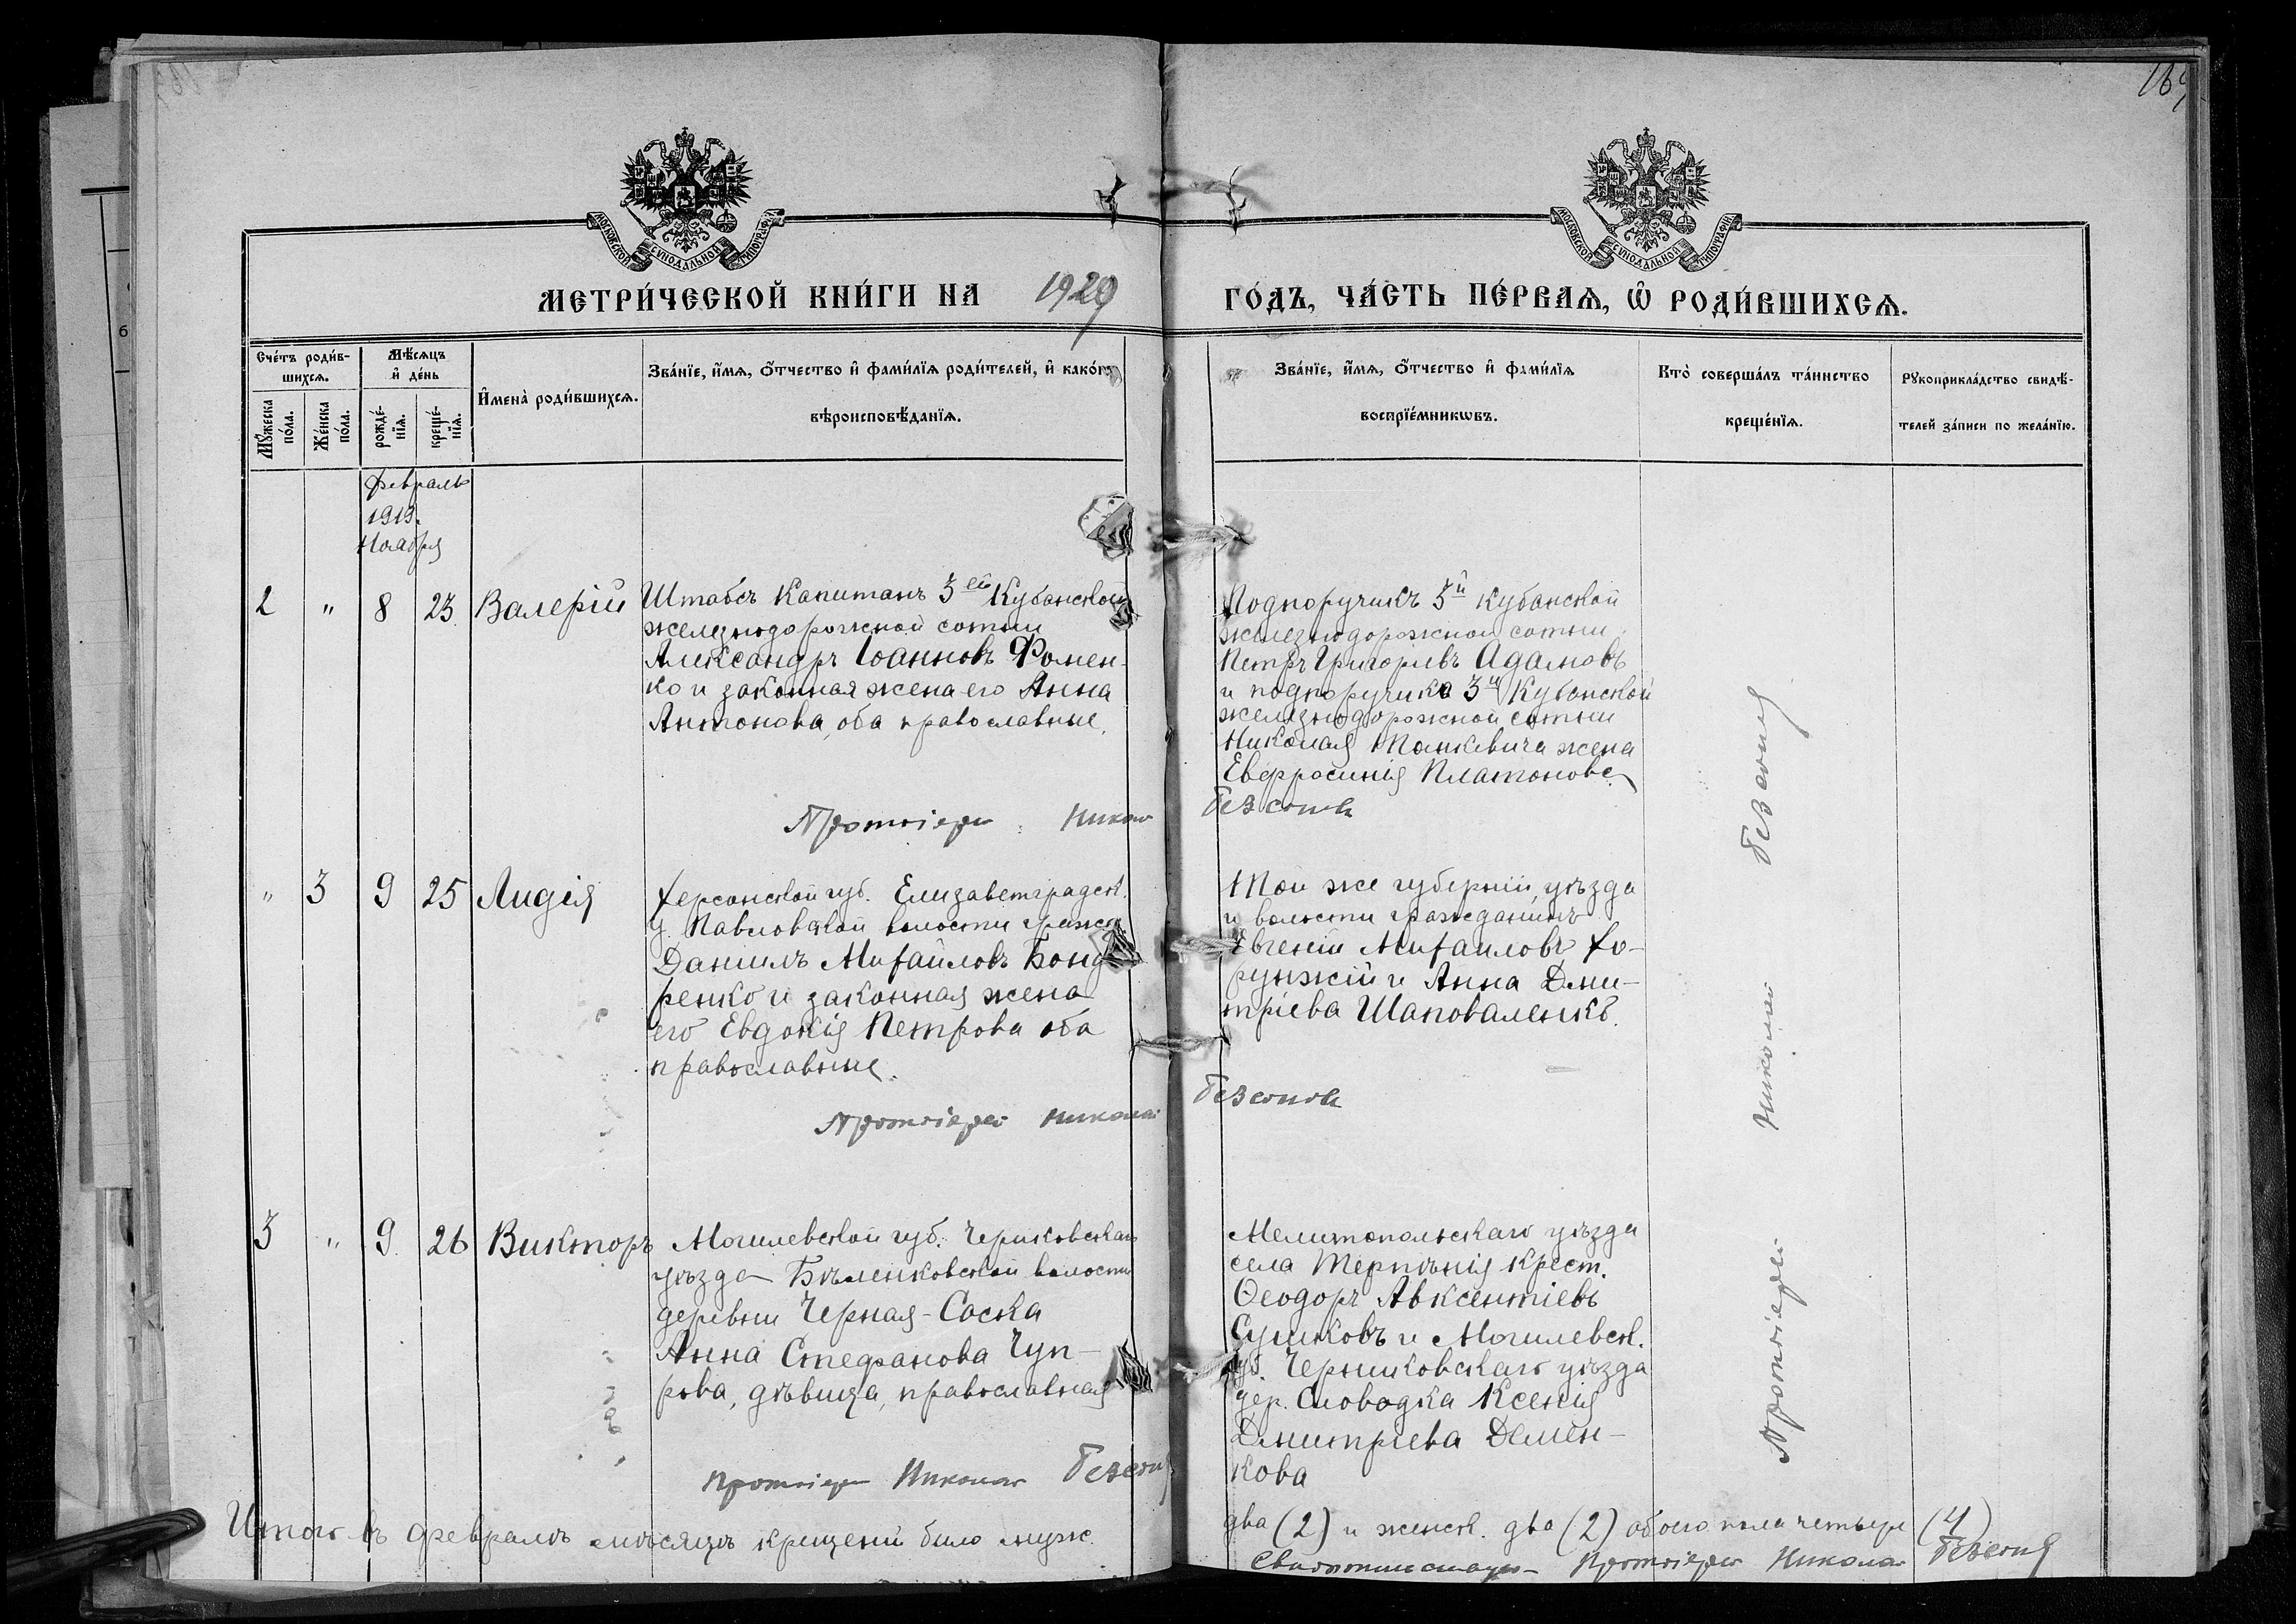 169
МОСКОВСКОЙ СѴНОДАЛЬНОЙ ТИПОГРАФІИ
МОСКОВСКОЙ СѴНОДАЛЬНОЙ ТИПОГРАФІИ
МЕТРИ́ЧЕСКОЙ КНИ́ГИ НА 1920 ГО́ДЪ, ЧА́СТЬ ПЕ́РВАѦ, Ѡ҆ РОДИ́ВШИХСѦ.
Сче́тъ роди́в-
шихсѧ.
Мꙋ́жеска по́ла.
Же́нска по́ла.
Мѣ́сѧцъ
и҆ де́нь
рожде́-
нїѧ.
креще́-
нїѧ.
И҆мена̀ роди́вшихсѧ.
Зва́нїе, и҆́мѧ, ѻ҆́тчество и҆ фами́лїѧ роди́телей, и҆ како́гѡ
вѣроисповѣ́данїѧ.
Зва́нїе, и҆́мѧ, ѻ҆́тчество и҆ фами́лїѧ
воспрїе́мникѡвъ.
Кто̀ соверша́лъ та́инство
креще́нїѧ.
Рꙋкоприкла́дство свидѣ́-
телей за́писи по жела́нїю.
Февраль
1919.
Ноабря
2 " 8 23 Валерій
Штабсъ Капитанъ 3ей Кубанской
железнодорожной сотни
Александръ Іоанновъ Фомен-
ко и законная жена его Анна
Антонова, оба православные.
Подпоручикъ 3й Кубанской
железнодорожной сотни
Петръ Григорьевъ Адамовъ
и подпоручика 3й Кубанской
железнодорожной сотни
Николая Манкевича жена
Евфросинія Платонова
Протоіерей Николай Безсонов
" 3 9 25 Лидія
Херсонской губ. Елизаветградск.
у. Павловской волости гражд.
Даніилъ Михайловъ Бонд
ренко и законная жена
его Евдокія Петрова оба
православные.
Той же губерніи, уѣзда
и волости гражданинъ
Евгеній Михаиловъ Хо-
рунжій и Анна Дми-
тріева Шаповаленкъ.
Протоіерей Николай Безсонов
3 " 9. 26 Викторъ
Могилевской губ. Чериковскаго
уѣзда Бѣленковской волости
деревни Черная-Соска
Анна Стефанова Чуп-
рова, дѣвица, православная
Мелитопольскаго уѣзда
села Терпѣнія Крест.
Ѳеодоръ Авксентіевъ
Сушковъ и Могилевск.
губ. Чериковскаго уѣзда
дер. Слободка Ксенія
Дмитріева Демен-
кова
Протоіерей Николай Безсонов
Протоіерей Николай Безсонов
Итого въ февралѣ мѣсяцѣ крещеній было муж. два (2) и женск. два (2) обоего пола четыре (4)
Протоіерей Николай Безсонов